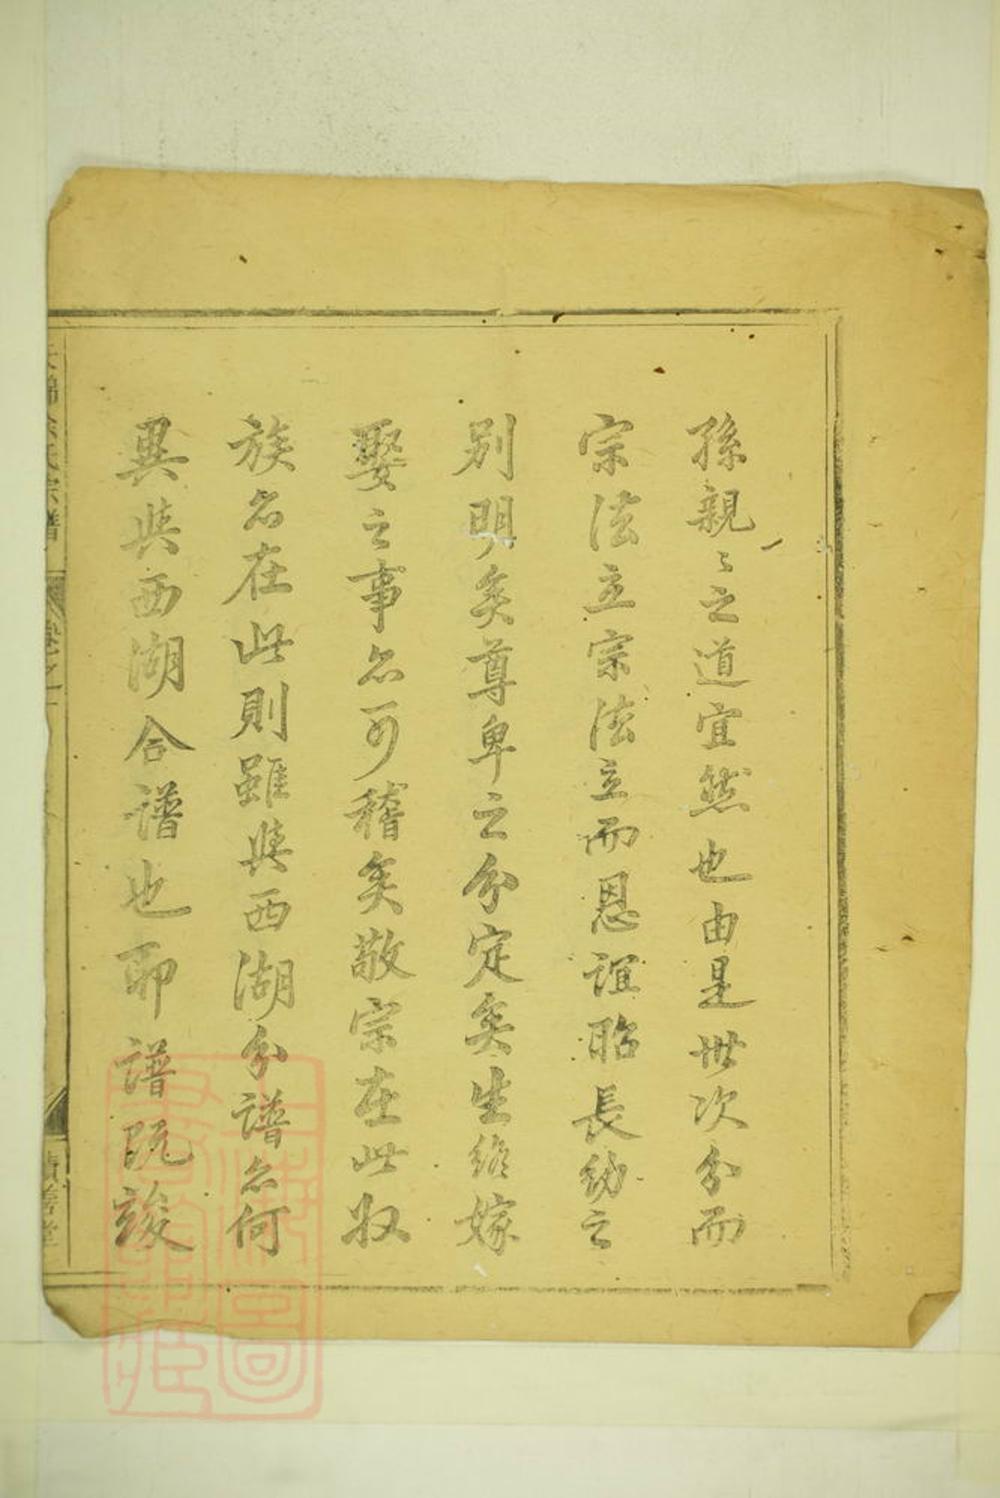 孫親〻之道宜然也由是世次分而
宗法立宗法立而恩誼昭長幼之
別明矣尊卑之分定矣生終嫁
娶之事亦可稽矣敬宗在此收
族亦在此則雖與西湖分譜亦何
異與西湖合譜也耶譜既竣
氏宗譜
卷之一
積善堂